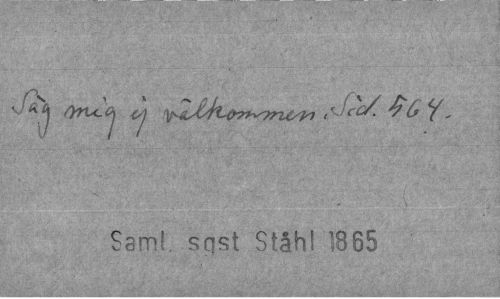 Säg mig ej välkommen. Sid. 564.
Saml. sqst Ståhl 1865